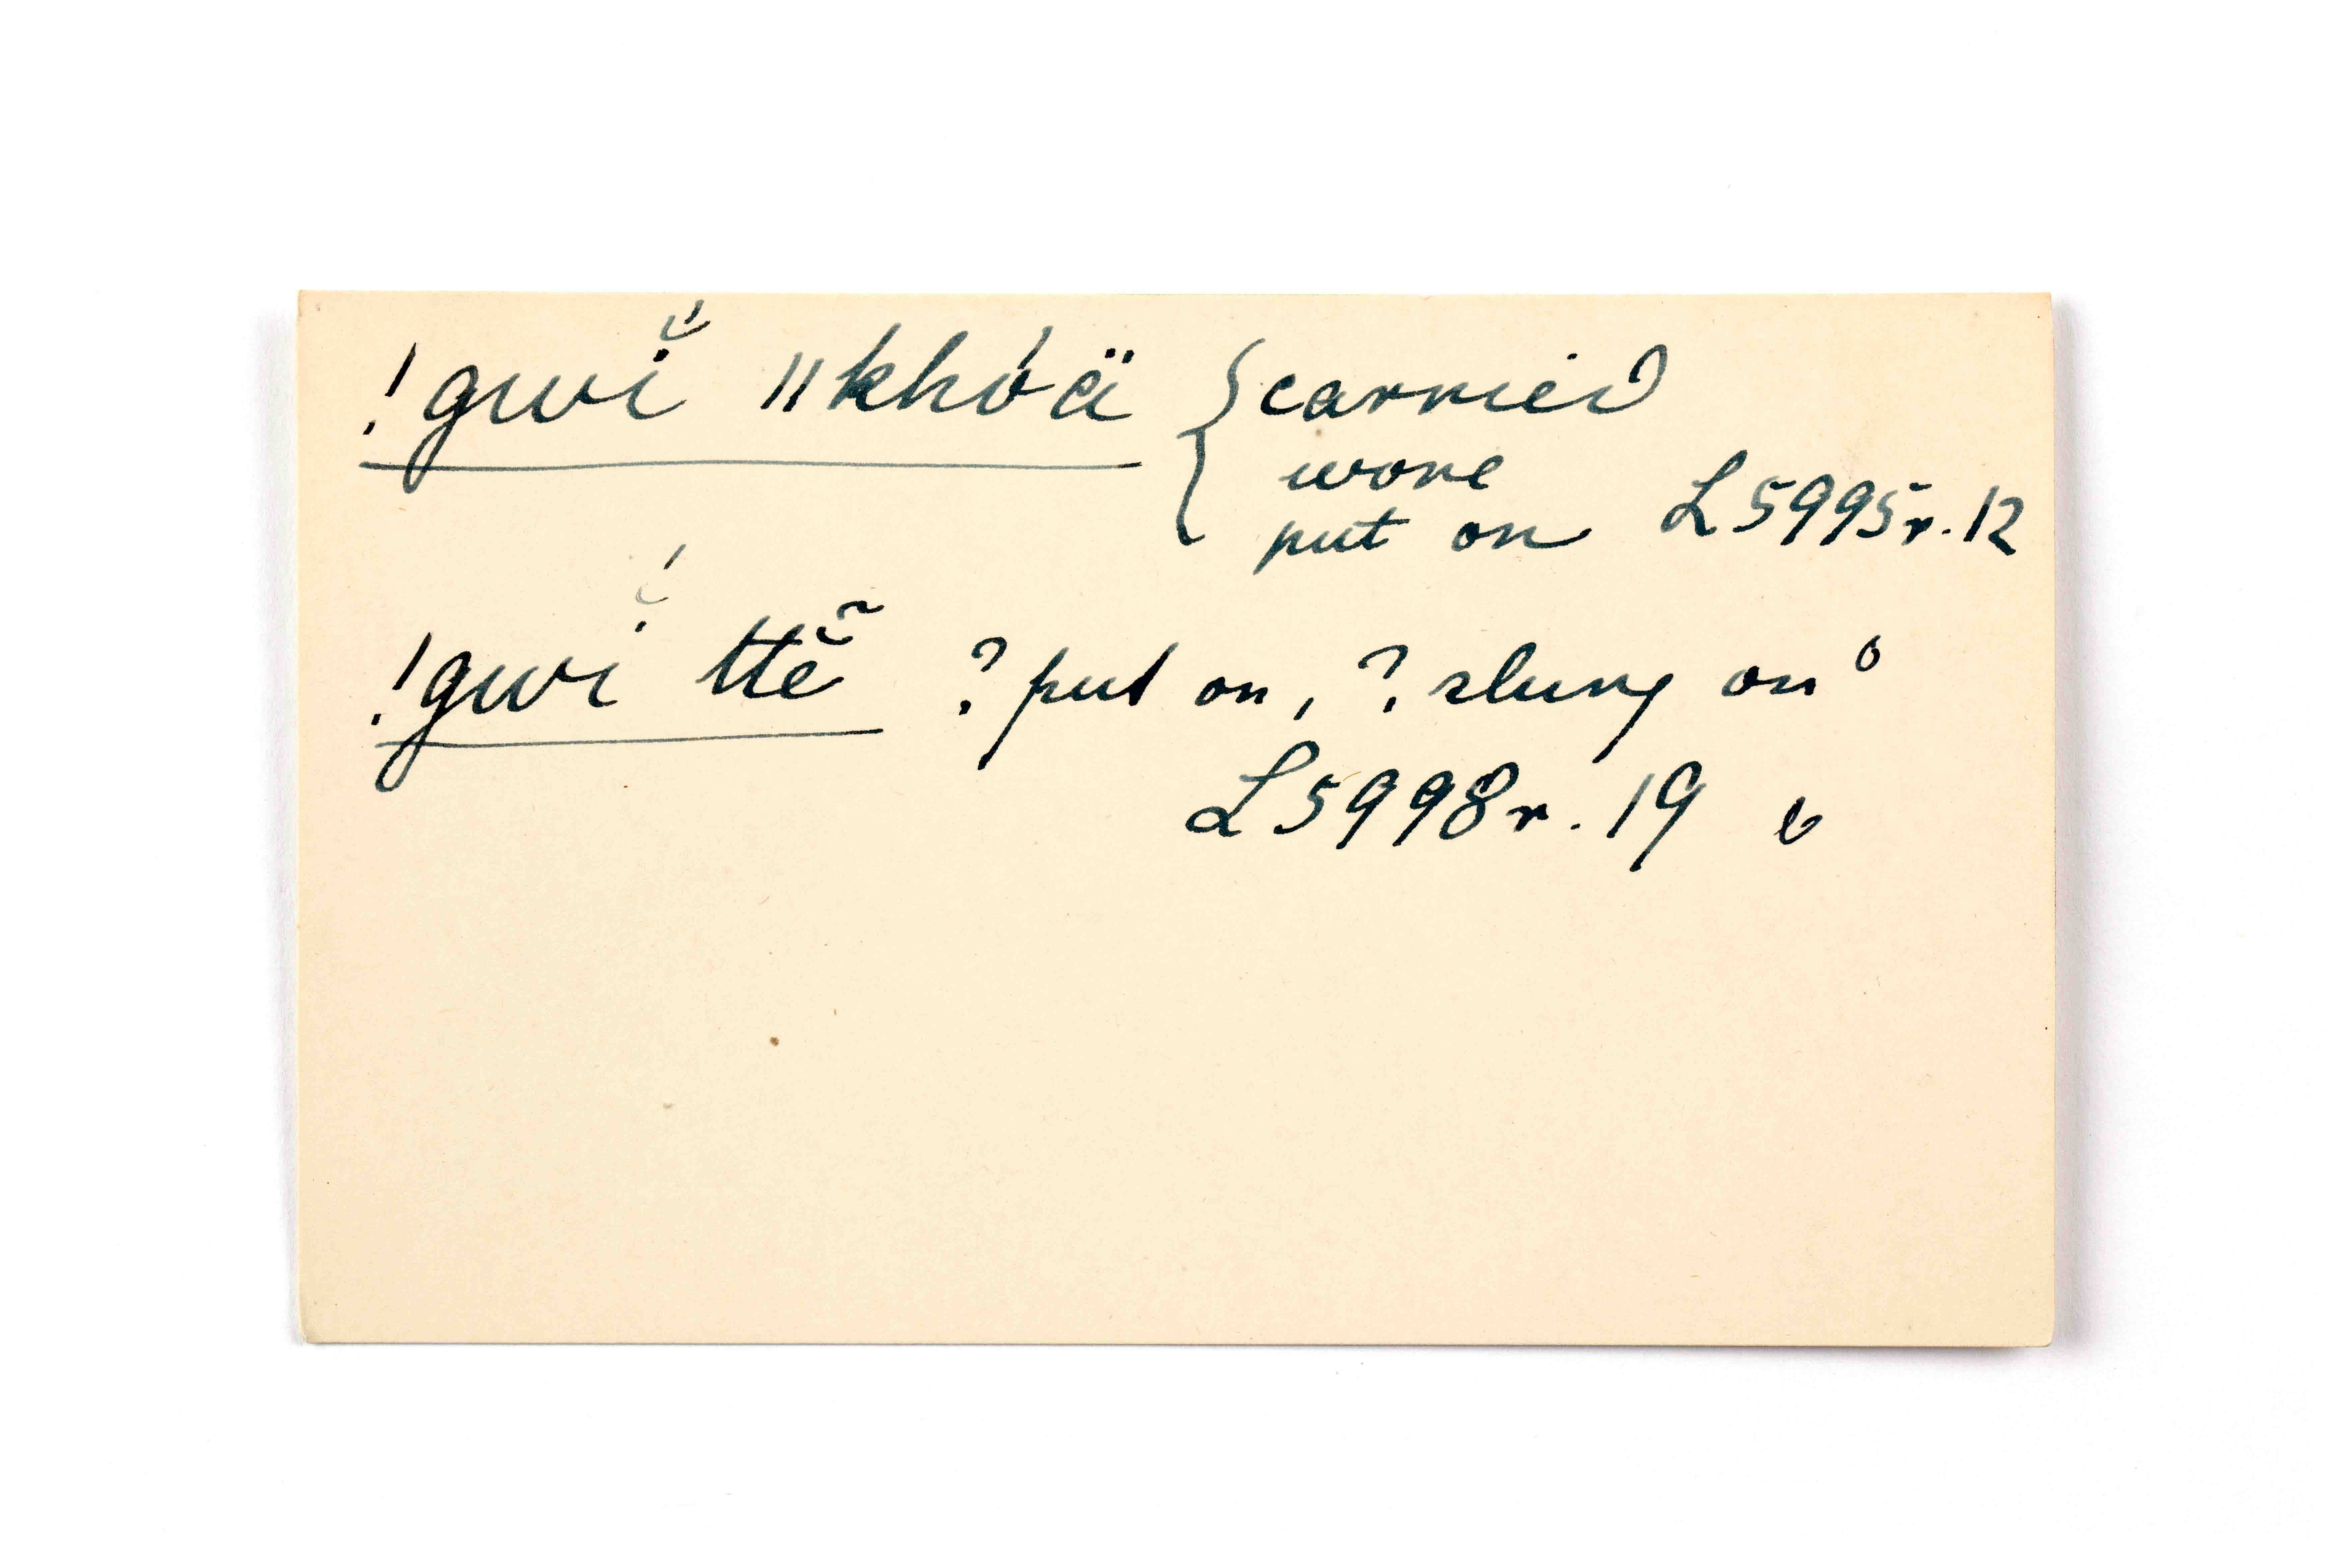 !gwĭ́ ǁkhóä { carried
wore
put on L5995r.12
!gwĭ́ ttĕ̃ ? put on, ? slung on
L5998r.19